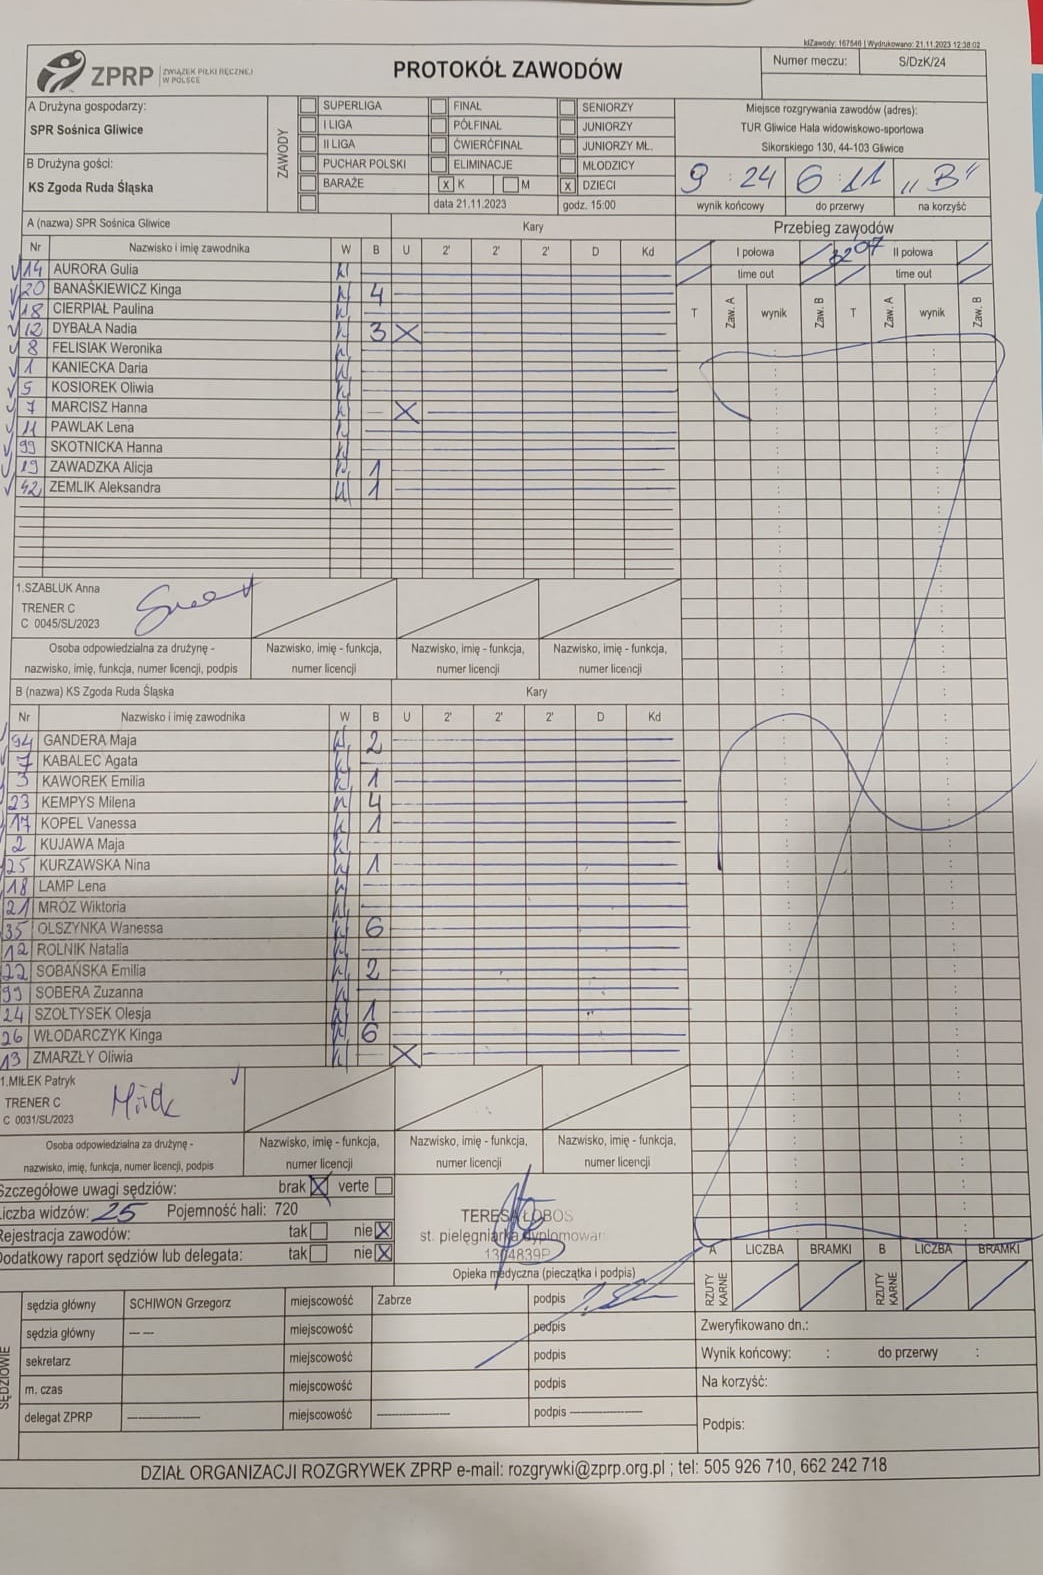 idZawody: 167646 | Wydrukowano: 21.11.2023 12:38:02
ZPRP ZWIĄZEK PIŁKI RĘCZNEJ W POLSCE
PROTOKÓŁ ZAWODÓW
Numer meczu: S/DzK/24
A Drużyna gospodarzy:
SPR Sośnica Gliwice
B Drużyna gości:
KS Zgoda Ruda Śląska
ZAWODY
SUPERLIGA FINAŁ SENIORZY
I LIGA PÓŁFINAŁ JUNIORZY
II LIGA ĆWIERĆFINAŁ JUNIORZY MŁ.
PUCHAR POLSKI ELIMINACJE MŁODZICY
BARAŻE X K M X DZIECI
data 21.11.2023 godz. 15:00
Miejsce rozgrywania zawodów (adres):
TUR Gliwice Hala widowiskowo-sportowa
Sikorskiego 130, 44-103 Gliwice
9 : 24 6 : 11 „B"
wynik końcowy do przerwy na korzyść
A (nazwa) SPR Sośnica Gliwice Kary
Nr Nazwisko i imię zawodnika W B U 2' 2' 2' D Kd
14 AURORA Gulia
20 BANAŚKIEWICZ Kinga 4
18 CIERPIAŁ Paulina
12 DYBAŁA Nadia 3 X
8 FELISIAK Weronika
1 KANIECKA Daria
5 KOSIOREK Oliwia
7 MARCISZ Hanna – X
11 PAWLAK Lena
99 SKOTNICKA Hanna
19 ZAWADZKA Alicja 1
42 ZEMLIK Aleksandra 1
Przebieg zawodów
I połowa II połowa
time out time out
T Zaw. A wynik Zaw. B T Zaw. A wynik Zaw. B
1.SZABLUK Anna
TRENER C
C 0045/SL/2023
Osoba odpowiedzialna za drużynę - nazwisko, imię, funkcja, numer licencji, podpis
Nazwisko, imię - funkcja, numer licencji
Nazwisko, imię - funkcja, numer licencji
Nazwisko, imię - funkcja, numer licencji
B (nazwa) KS Zgoda Ruda Śląska Kary
Nr Nazwisko i imię zawodnika W B U 2' 2' 2' D Kd
94 GANDERA Maja 2
7 KABALEC Agata
3 KAWOREK Emilia 1
23 KEMPYS Milena 4
17 KOPEL Vanessa 1
2 KUJAWA Maja
25 KURZAWSKA Nina 1
18 LAMP Lena
21 MRÓZ Wiktoria
35 OLSZYNKA Wanessa 6
12 ROLNIK Natalia
22 SOBAŃSKA Emilia 2
99 SOBERA Zuzanna
24 SZOŁTYSEK Olesja 1
26 WŁODARCZYK Kinga 6
13 ZMARZŁY Oliwia – X
1.MIŁEK Patryk
TRENER C
C 0031/SL/2023
Osoba odpowiedzialna za drużynę - nazwisko, imię, funkcja, numer licencji, podpis
Nazwisko, imię - funkcja, numer licencji
Nazwisko, imię - funkcja, numer licencji
Nazwisko, imię - funkcja, numer licencji
Szczegółowe uwagi sędziów: brak X verte
Liczba widzów: 25 Pojemność hali: 720
Rejestracja zawodów: tak nie X
Dodatkowy raport sędziów lub delegata: tak nie X
TERESA ŁOBOS
st. pielęgniarka dyplomowana
Opieka medyczna (pieczątka i podpis)
A RZUTY KARNE LICZBA BRAMKI B RZUTY KARNE LICZBA BRAMKI
SĘDZIOWIE
sędzia główny SCHIWON Grzegorz miejscowość Zabrze podpis
sędzia główny –– –– miejscowość podpis
sekretarz miejscowość podpis
m. czas miejscowość podpis
delegat ZPRP miejscowość podpis
Zweryfikowano dn.:
Wynik końcowy: : do przerwy :
Na korzyść:
Podpis:
DZIAŁ ORGANIZACJI ROZGRYWEK ZPRP e-mail: rozgrywki@zprp.org.pl ; tel: 505 926 710, 662 242 718